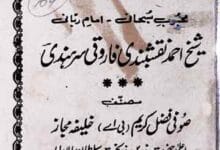 محبوب سبحانی - امام ربانی
شیخ احمد نقشبندی فاروقی سرہندی
***
مصنف
صوفی فضل کریم (بی اے) خلیفہ مجاز